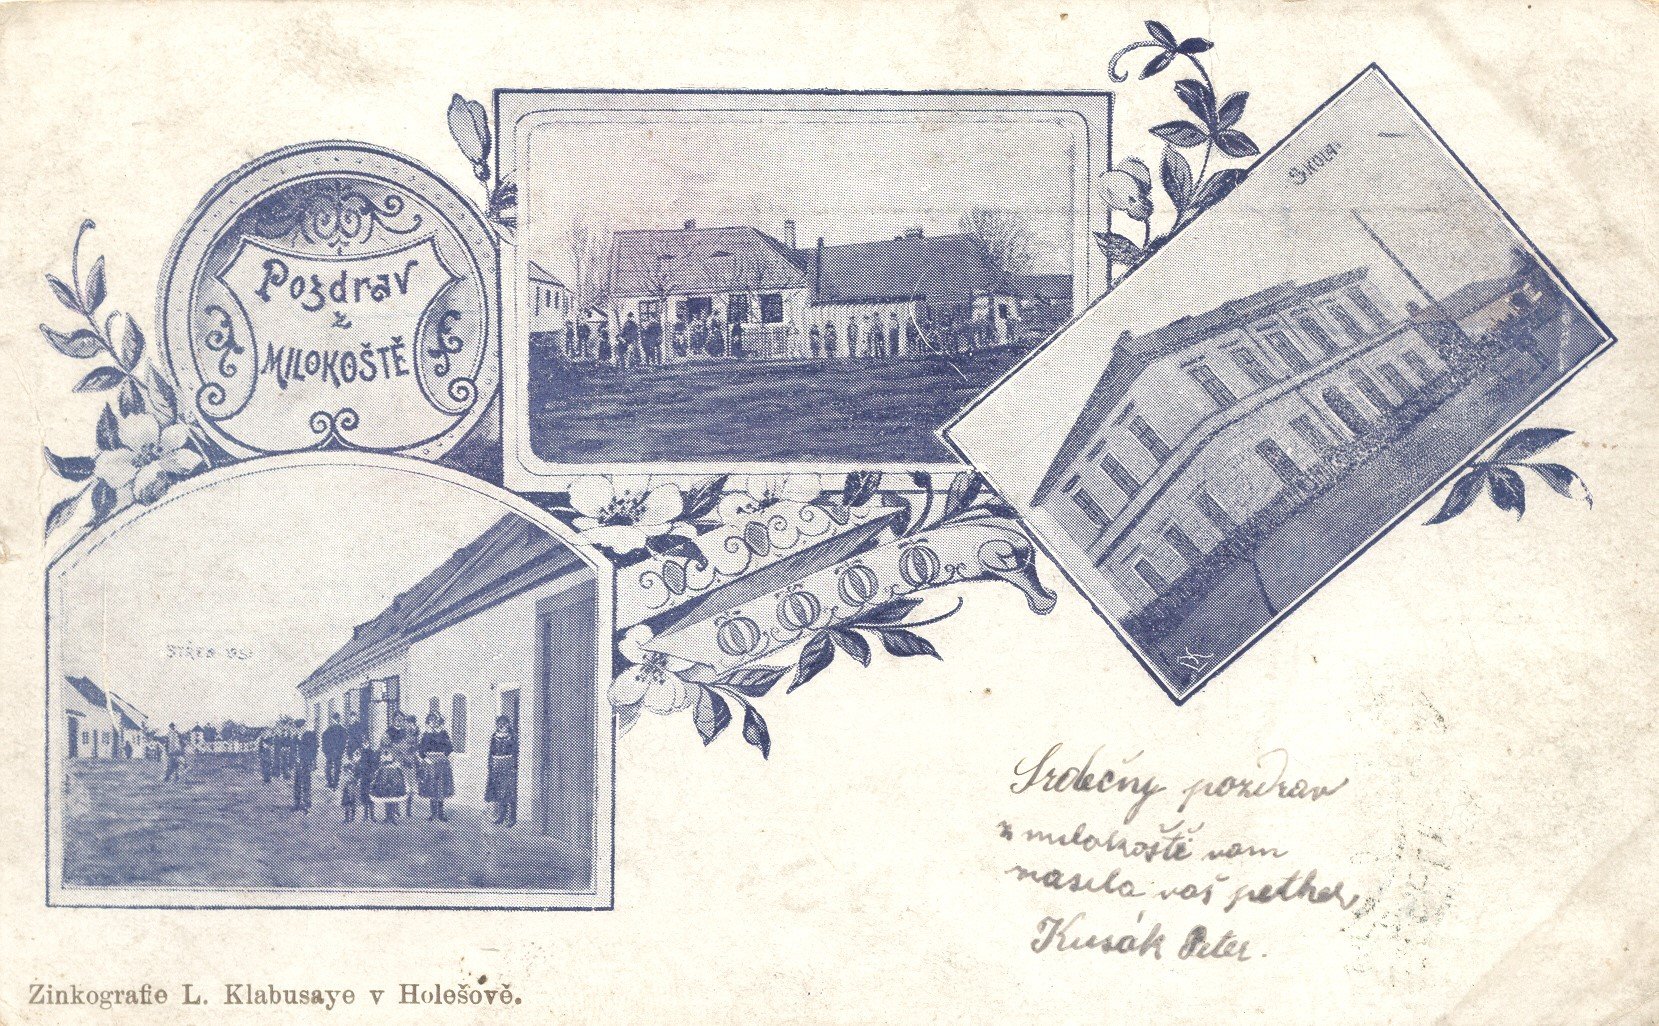 Pozdrav
z
MILOKOŠTĚ
ŠKOLA
Srdečný pozdrav
z milokoště vam
vaš
Kusák Peter.
Zinkografie L. Klabusaye v Holešově.